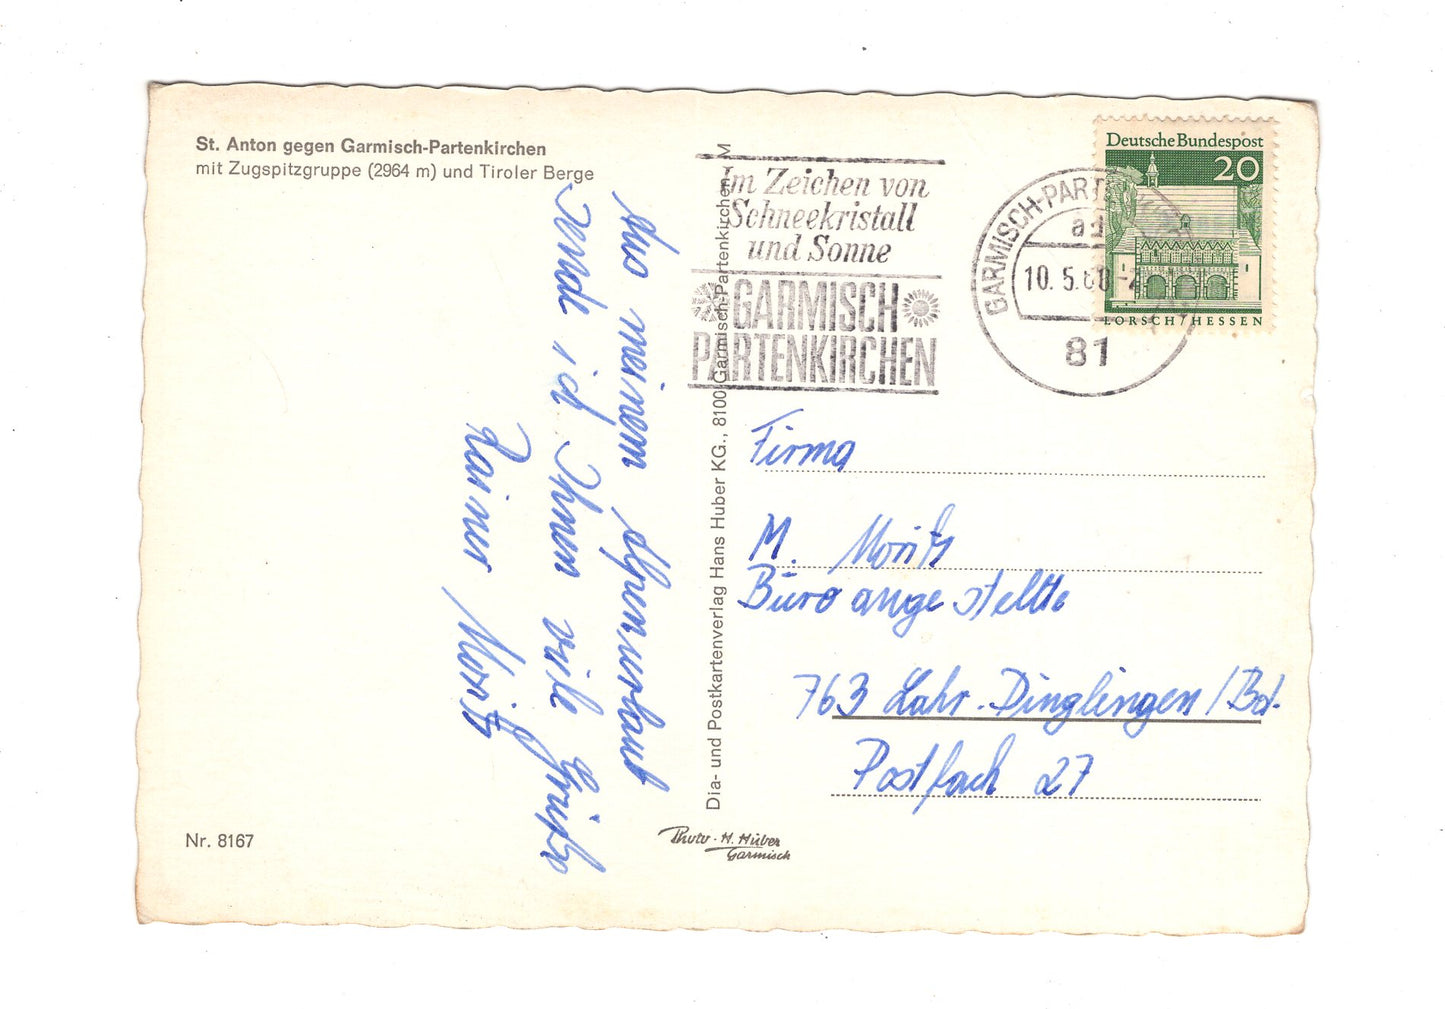 St. Anton gegen Garmisch-Partenkirchen
mit Zugspitzgruppe (2964 m) und Tiroler Berge
Aus meinem Alpenurlaub
sende ich Ihnen viele Grüße
Rainer Moritz
Nr. 8167
Dia- und Postkartenverlag Hans Huber KG., 8100 Garmisch-Partenkirchen / M
Photo - H. Huber
Garmisch
Im Zeichen von
Schneekristall
und Sonne
GARMISCH
PARTENKIRCHEN
GARMISCH-PART
10. 5. 68
81
Deutsche Bundespost
20
LORSCH/HESSEN
Firma
M. Moritz
Büroangestellte
763 Lahr-Dinglingen/Bd.
Postfach 27